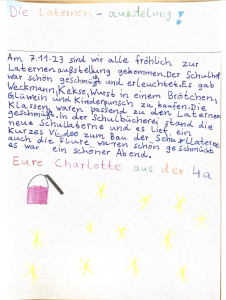 Die Laternen-ausstelung!
Am 7.11.23 sind wir alle fröhlich zur
Laternenaußstellung gekommen. Der Schulhof
war schön geschmügt und erleuchtet. Es gab
Weckmann, Kekse, Wurst in einem Brötchen,
Glüwein und Kinderpunsch zu kaufen. Die
Klassen waren passend zu den Laternen
geschmügt. In der Schulbücherei stand die
neue Schullaterne und es lief ein
Kurzes Video zum Bau der Schullaterne
auch die Flure waren schön geschmückt
es war ein schöner Abend.
Eure Charlotte aus der 4a